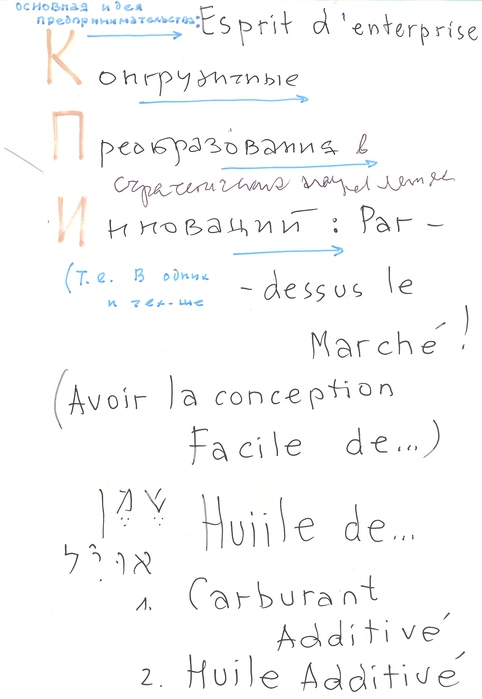 основная идея
предпринимательства: Esprit d'enterprise
Конгруэнтные
Преобразования в
стратегических
Инноваций: Par-
(т.е. в одних
и тех-же
-dessus le
Marché!
(Avoir la conception
Facile de...)
שֶׁמֶן
Huiile de...
1. Carburant
Additivé
2. Huile Additivé